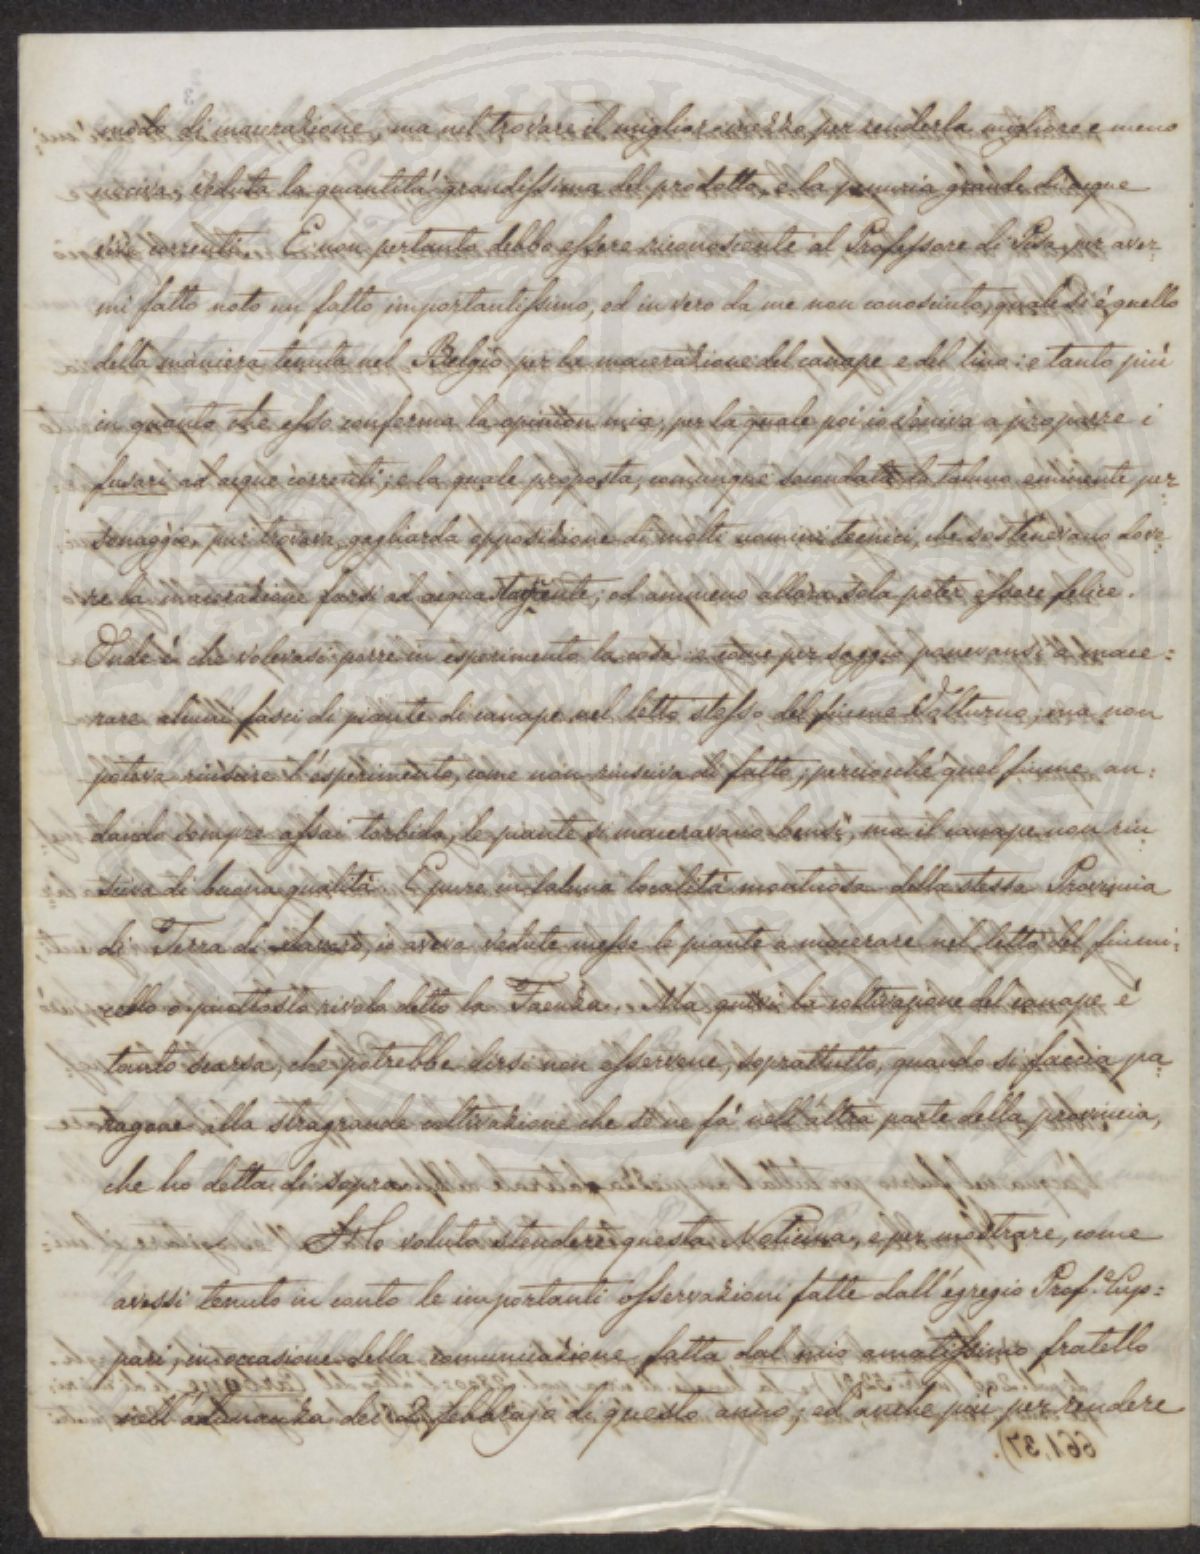 modo di macerazione, ma nel trovare il miglior mezzo per renderla migliore e meno
nociva, veduta la quantità grandissima del prodotto, e la penuria grande di acque
vive correnti. E non pertanto debbo essere riconoscente al Professore di Pisa per aver=
mi fatto noto un fatto importantissimo, ed in vero da me non conosciuto, quale si è quello
della maniera tenuta nel Belgio per la macerazione del canape e del lino: e tanto più
in quanto che esso conferma la opinion mia, per la quale poi io veniva a proporre i
fusari ad acque correnti; e la quale proposta, comunque secondata da taluno eminente per=
sonaggio, pur trovava gagliarda opposizione di molti uomini tecnici, che sostenevano dove=
re la macerazione farsi ad acqua stagnante; od ammeno allora sola poter essere felice.
Onde è che volevasi porre in esperimento la cosa: e come per saggio ponevansi a mace=
rare alcuni fasci di piante di canape nel letto stesso del fiume Volturno; ma non
poteva riuscire l'esperimento, come non riusciva di fatto; perciocchè quel fiume an=
dando sempre assai torbido, le piante si maceravano bensì, ma il canape non riu=
sciva di buona qualità. Epure in taluna località montuosa della stessa Provincia
di Terra di Lavoro, io aveva vedute messe le piante a macerare nel letto del fiumi=
cello o piuttosto rivolo detto la Faenza. Ma quivi la coltivazione del canape è
tanto scarsa, che potrebbe dirsi non esservene, soprattutto, quando si faccia pa=
ragone alla stragrande coltivazione che se ne fà nell'altra parte della provincia,
che ho detta di sopra.
Ho voluto stendere questa Noticina, e per mostrare, come
avessi tenuto in conto le importanti osservazioni fatte dall'egregio Prof.e Cup=
pari, in occasione della comunicazione fatta dal mio amatissimo fratello
nell'adunanza dei 2 febbrajo di questo anno; ed anche più per rendere